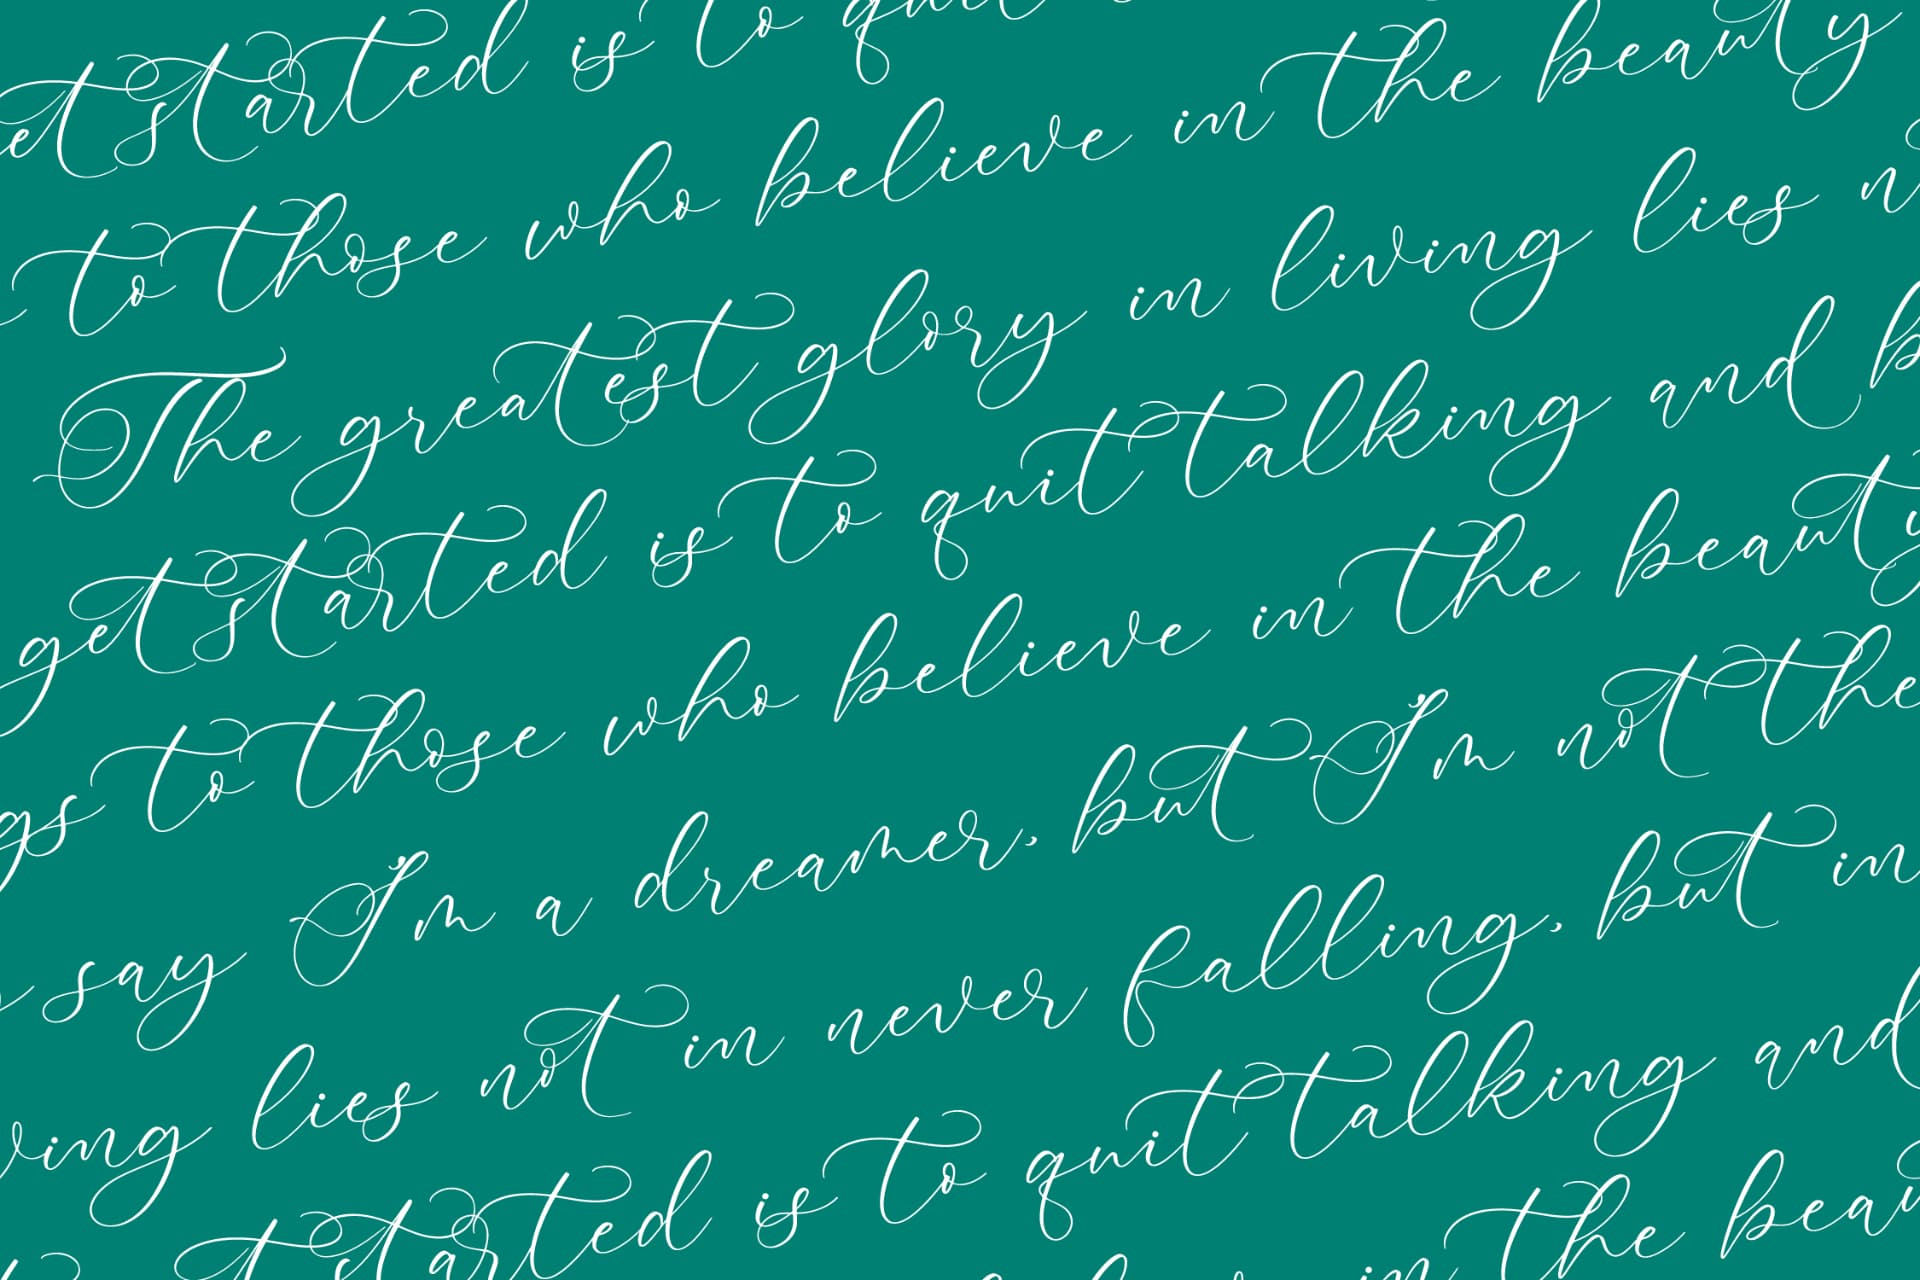 get started is to quit
to those who believe in the beauty
The greatest glory in living lies
get started is to quit talking and
gs to those who believe in the beauty
say I'm a dreamer, but I'm not the
ving lies not in never falling, but in
started is to quit talking and
in the beau